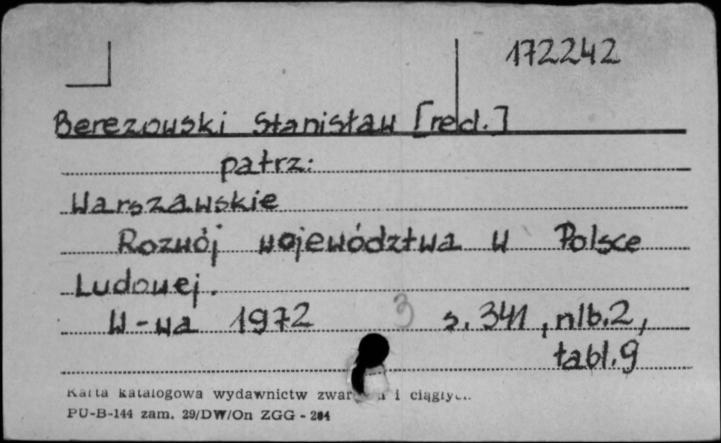 172242
Berezowski Stanisław [red.]
patrz:
Warszawskie
Rozwój województwa w Polsce
Ludowej.
W-wa 1972 3 s. 341, nlb.2,
tabl.9
Karta katalogowa wydawnictw i
PU-B-144 zam. 29/DW/On ZGG - 284